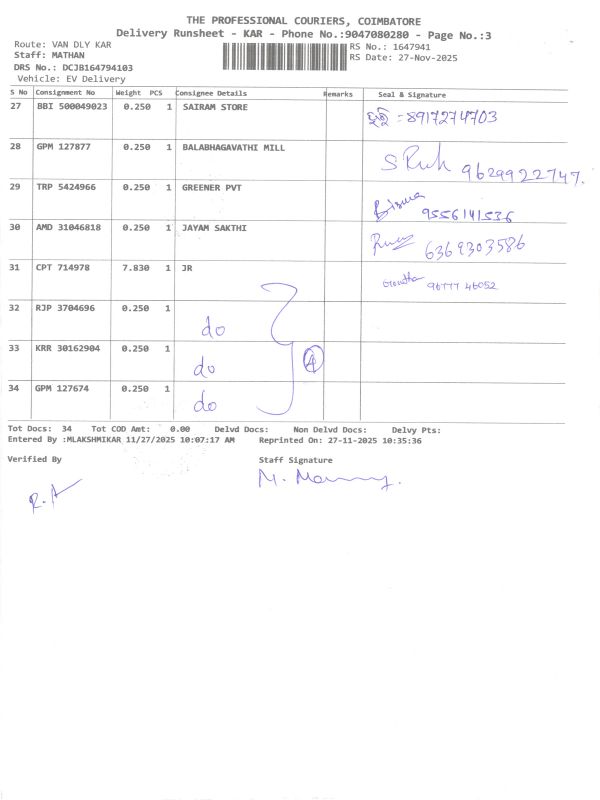 THE PROFESSIONAL COURIERS, COIMBATORE
Delivery Runsheet - KAR - Phone No.:9047080280 - Page No.:3
Route: VAN DLY KAR RS No.: 1647941
Staff: MATHAN RS Date: 27-Nov-2025
DRS No.: DCJB164794103
Vehicle: EV Delivery
S No Consignment No Weight PCS Consignee Details Remarks Seal & Signature
27 BBI 500049023 0.250 1 SAIRAM STORE 8917274703
28 GPM 127877 0.250 1 BALABHAGAVATHI MILL 9629922747.
29 TRP 5424966 0.250 1 GREENER PVT Biswa 9556141536
30 AMD 31046818 0.250 1 JAYAM SAKTHI 6369303586
31 CPT 714978 7.830 1 JR 96777 46052
32 RJP 3704696 0.250 1 do
33 KRR 30162904 0.250 1 do 4
34 GPM 127674 0.250 1 do
Tot Docs: 34 Tot COD Amt: 0.00 Delvd Docs: Non Delvd Docs: Delvy Pts:
Entered By :MLAKSHMIKAR 11/27/2025 10:07:17 AM Reprinted On: 27-11-2025 10:35:36
Verified By Staff Signature
R.A